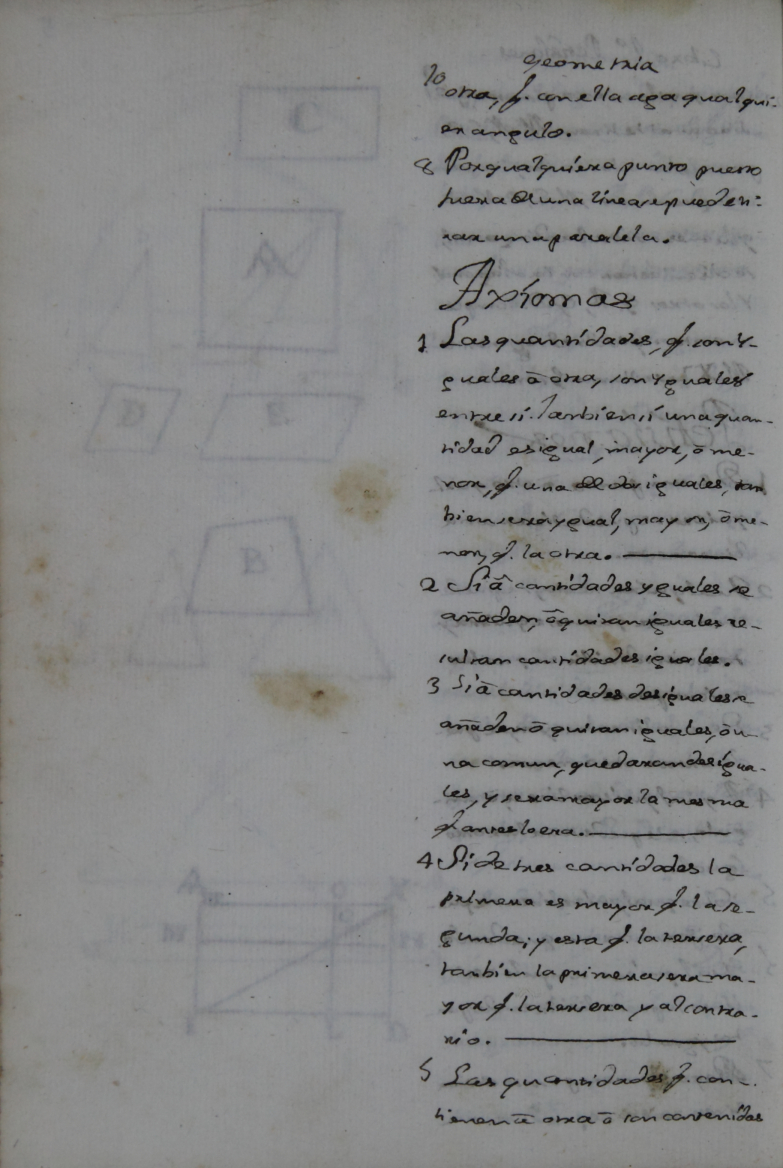 10 Geometria
otra, q. con ella aga qualqui-
er angulo.
8 Por qualquiera punto puesto
fuera de una linea se puede ti-
rar una paralela.
Axiomas
1 Las quantidades, q. son y-
guales â otra, son yguales
entre si. Tambien si una quan-
tidad es igual, mayor, ô me-
nor, q. una de dos iguales, tam
bien sera ygual, mayor, ô me-
nor, q. la otra.
2 Si â cantidades yguales se
añaden, ô quitan iguales re-
sultan cantidades iguales.
3 Si â cantidades desiguales se
añaden ô quitan iguales, ô u-
na comun, quedaran desigua-
les, y sera mayor la mesma
q. antes lo era.
4 Si de tres cantidades la
primera es mayor q. la se-
gunda, y esta q. la tersera,
tanbien la primera sera ma-
yor q. la tersera y al contra-
rio.
5 Las quantidades q. con-
tienen â otra ô son contenidas
C
A
D E
B
A O X
M
L D